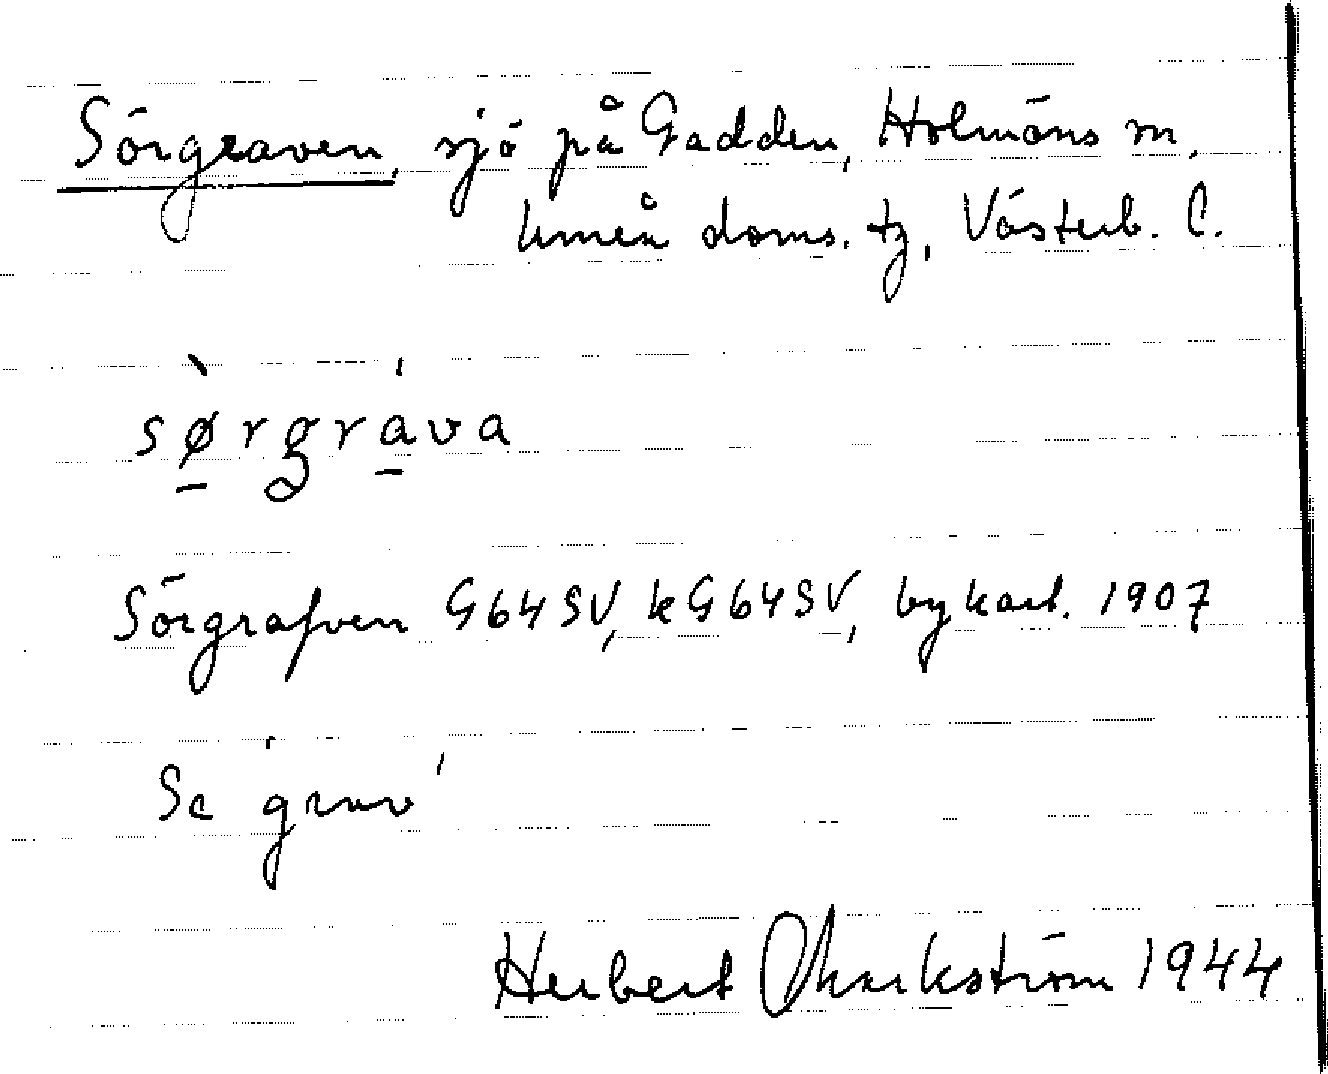 Sörgraven, sjö på Gadden, Holmöns sn,
Umeå doms. tg, Västerb. l.
sø̱rgra̱va
Sörgrafven G64SV, kG64SV, bykart. 1907
Se grav
Herbert Markström 1944